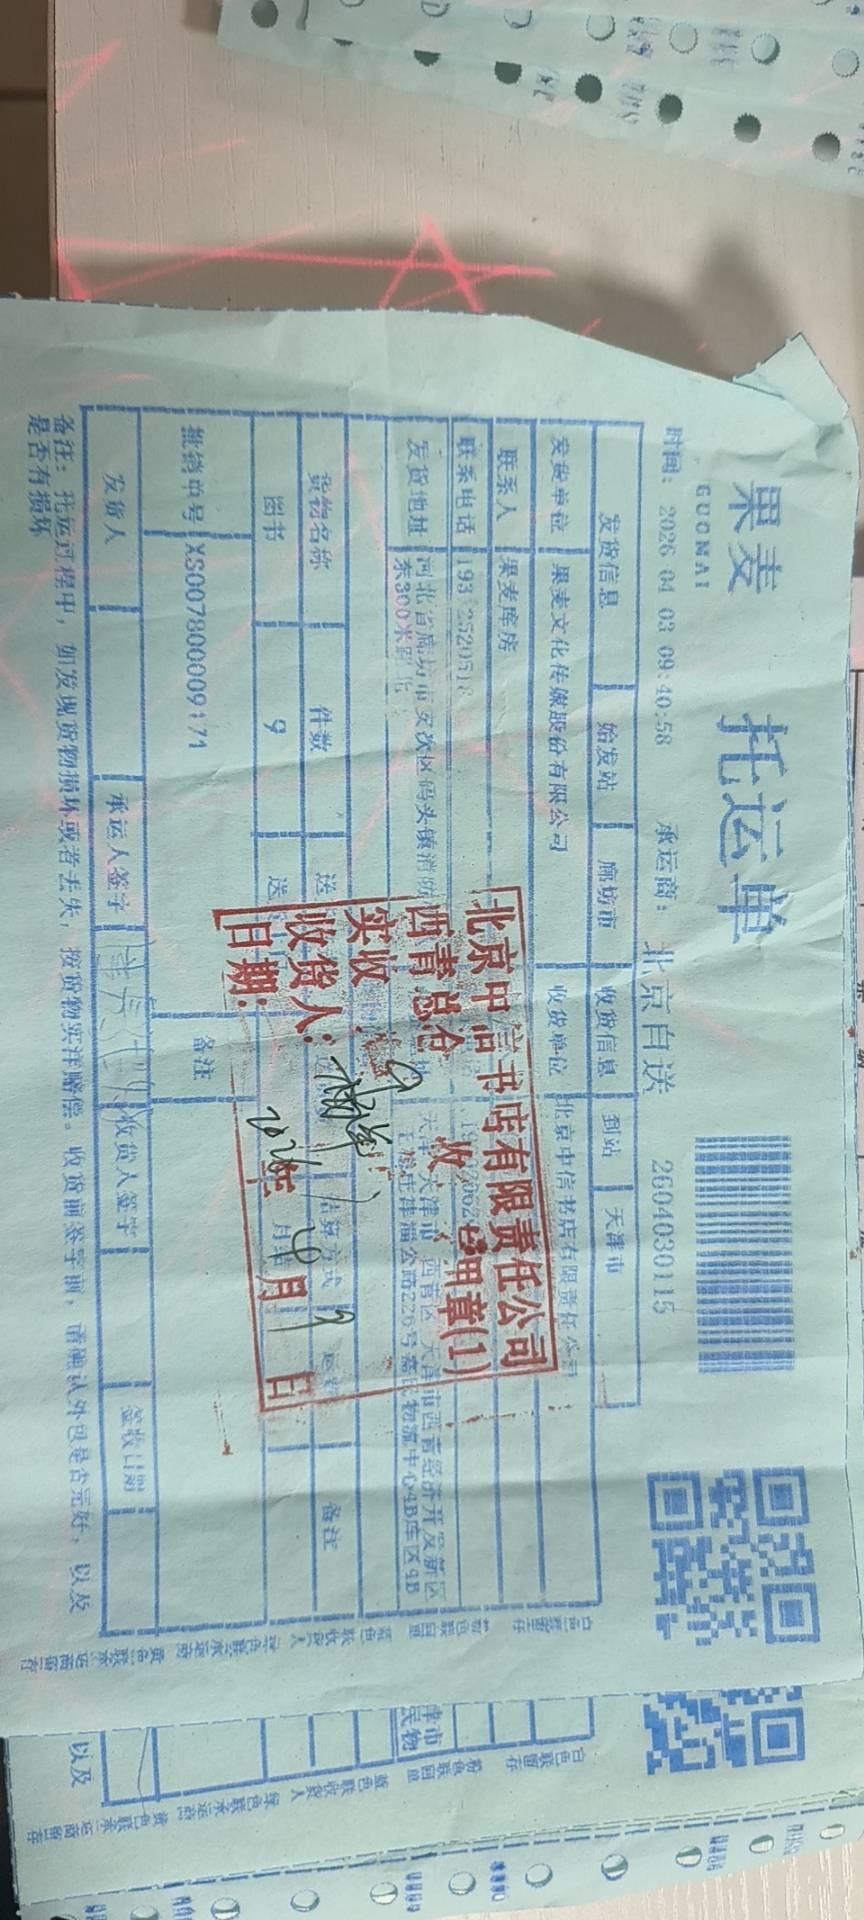 果麦
GUOMAI
托运单
时间: 2026 04 03 09:40:58 承运商: 北京自送 2604030115
发货信息 始发站 廊坊市 收货信息 到站 天津市
发货单位 果麦文化传媒股份有限公司 收货单位 北京中信书店有限责任公司
联系人 果麦库房
联系电话
发货地址 河北省廊坊市安次区码头镇消防
东300米路北
天津 天津市 西青区 天津市西青经济开发新区
津淄公路226号嘉民物流中心4B库区4B
货物名称 件数 送 结算方式 备注
图书 9 送
批销单号 XS007800009171 备注
发货人 承运人签字 收货人签字 签收日期
备注: 托运过程中, 如发现货物损坏或者丢失, 按货物实洋赔偿。收货前签字前, 请确认外包是否完好, 以及
是否有损坏
北京中信书店有限责任公司
西青总仓 收 专用章(1)
实收: 9
收货人:
日期: 2026年 4月 日
白色联留存
粉色联回单
蓝色联收货人
绿色联承运商
黄色联承运商留存
津市
民物
以及
白色联留存
粉色联回单
蓝色联收货人
绿色联承运商
黄色联承运商留存